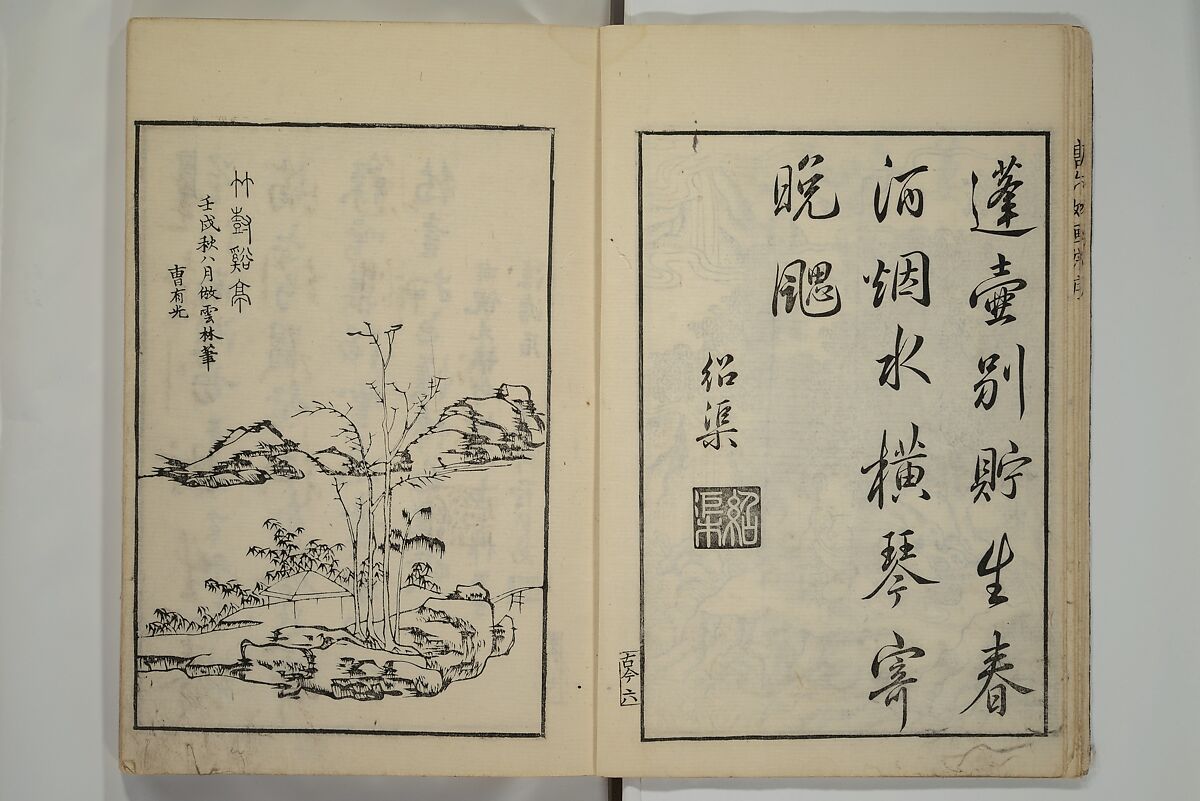 蓬壺別貯生春
酒烟水橫琴寄
晩颸
紹渠
紹渠
古今 六
竹樹谿亭
壬戌秋八月倣雲林筆
曹有光